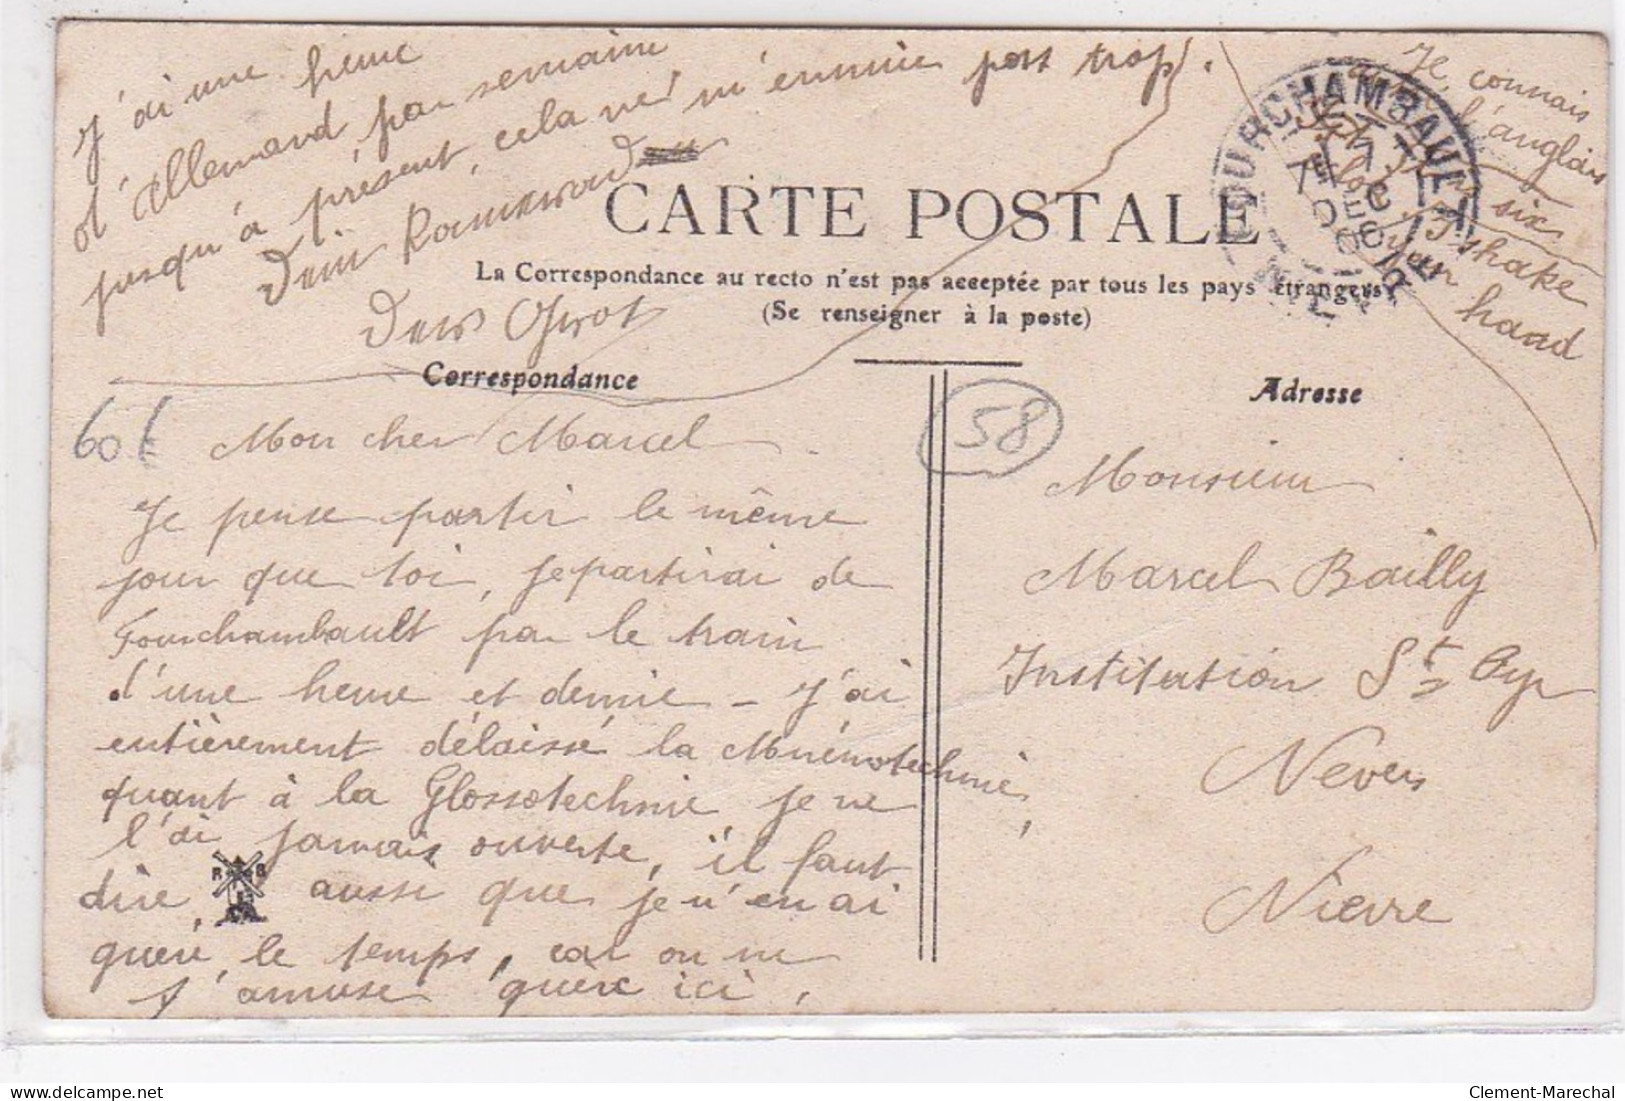 J'ai une heure
d'Allemand, par semaine
jusqu'à présent, cela ne m'ennuie pas trop.
Dein
Dein
Je connais
l'anglais
six
I shake
your hand
FOURCHAMBAULT
NIÈVRE
7 DEC
CARTE POSTALE
La Correspondance au recto n'est pas acceptée par tous les pays étrangers
(Se renseigner à la poste)
Correspondance
Adresse
60f
58
Mon cher Marcel
Je pense partir le même
jour que toi, je partirai de
Fourchambault par le train
d'une heure et demie - J'ai
entièrement délaissé la Mnémotechnie,
quant à la Glossotechnie je ne
l'ai jamais ouverte, il faut
dire aussi que je n'en ai
guère le temps, car on ne
s'amuse guère ici.
R B
Monsieur
Marcel Bailly
Institution St Cyr
Nevers
Nièvre
Clement-Marechal